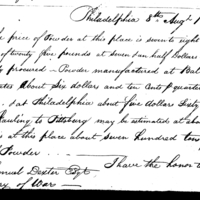 Philadelphia 8th Augt 1
price of Powder at this place is seven to eight
of twenty five pounds at seven & an half Dollars
procured — Powder manufactured at Bal
about Six dollars and ten Cents p quarter
at Philadelphia about five dollars Sixty
Hauling to Pittsburg may be estimated at abo
at this place about seven hundred tons
Powder
I have the honor to
muel Dexter Esqr
y of War —